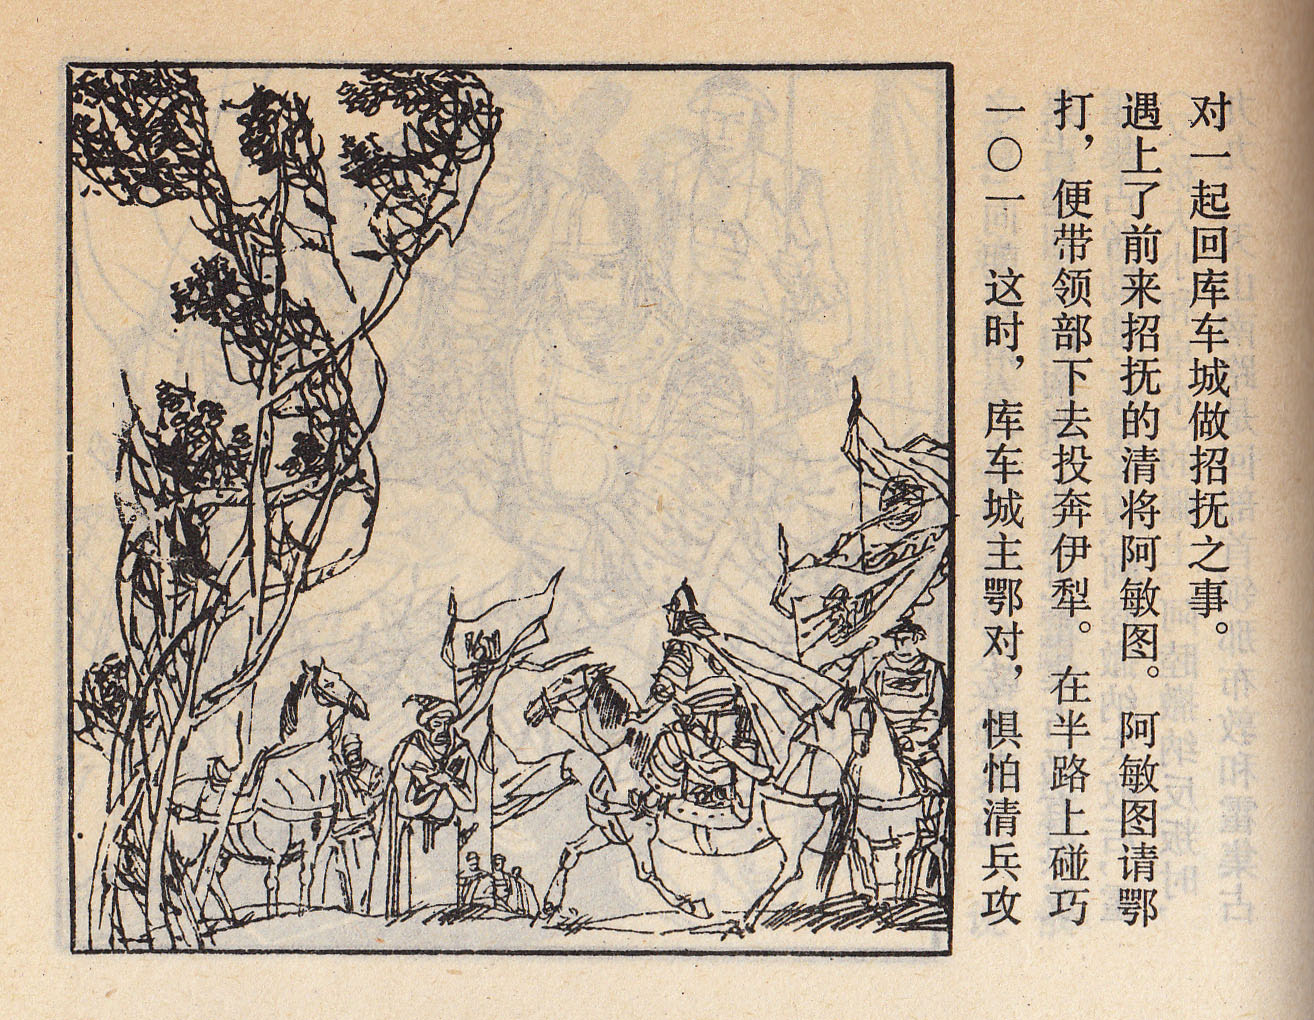 一〇一 这时，库车城主鄂对，惧怕清兵攻
打，便带领部下去投奔伊犁。在半路上碰巧
遇上了前来招抚的清将阿敏图。阿敏图请鄂
对一起回库车城做招抚之事。